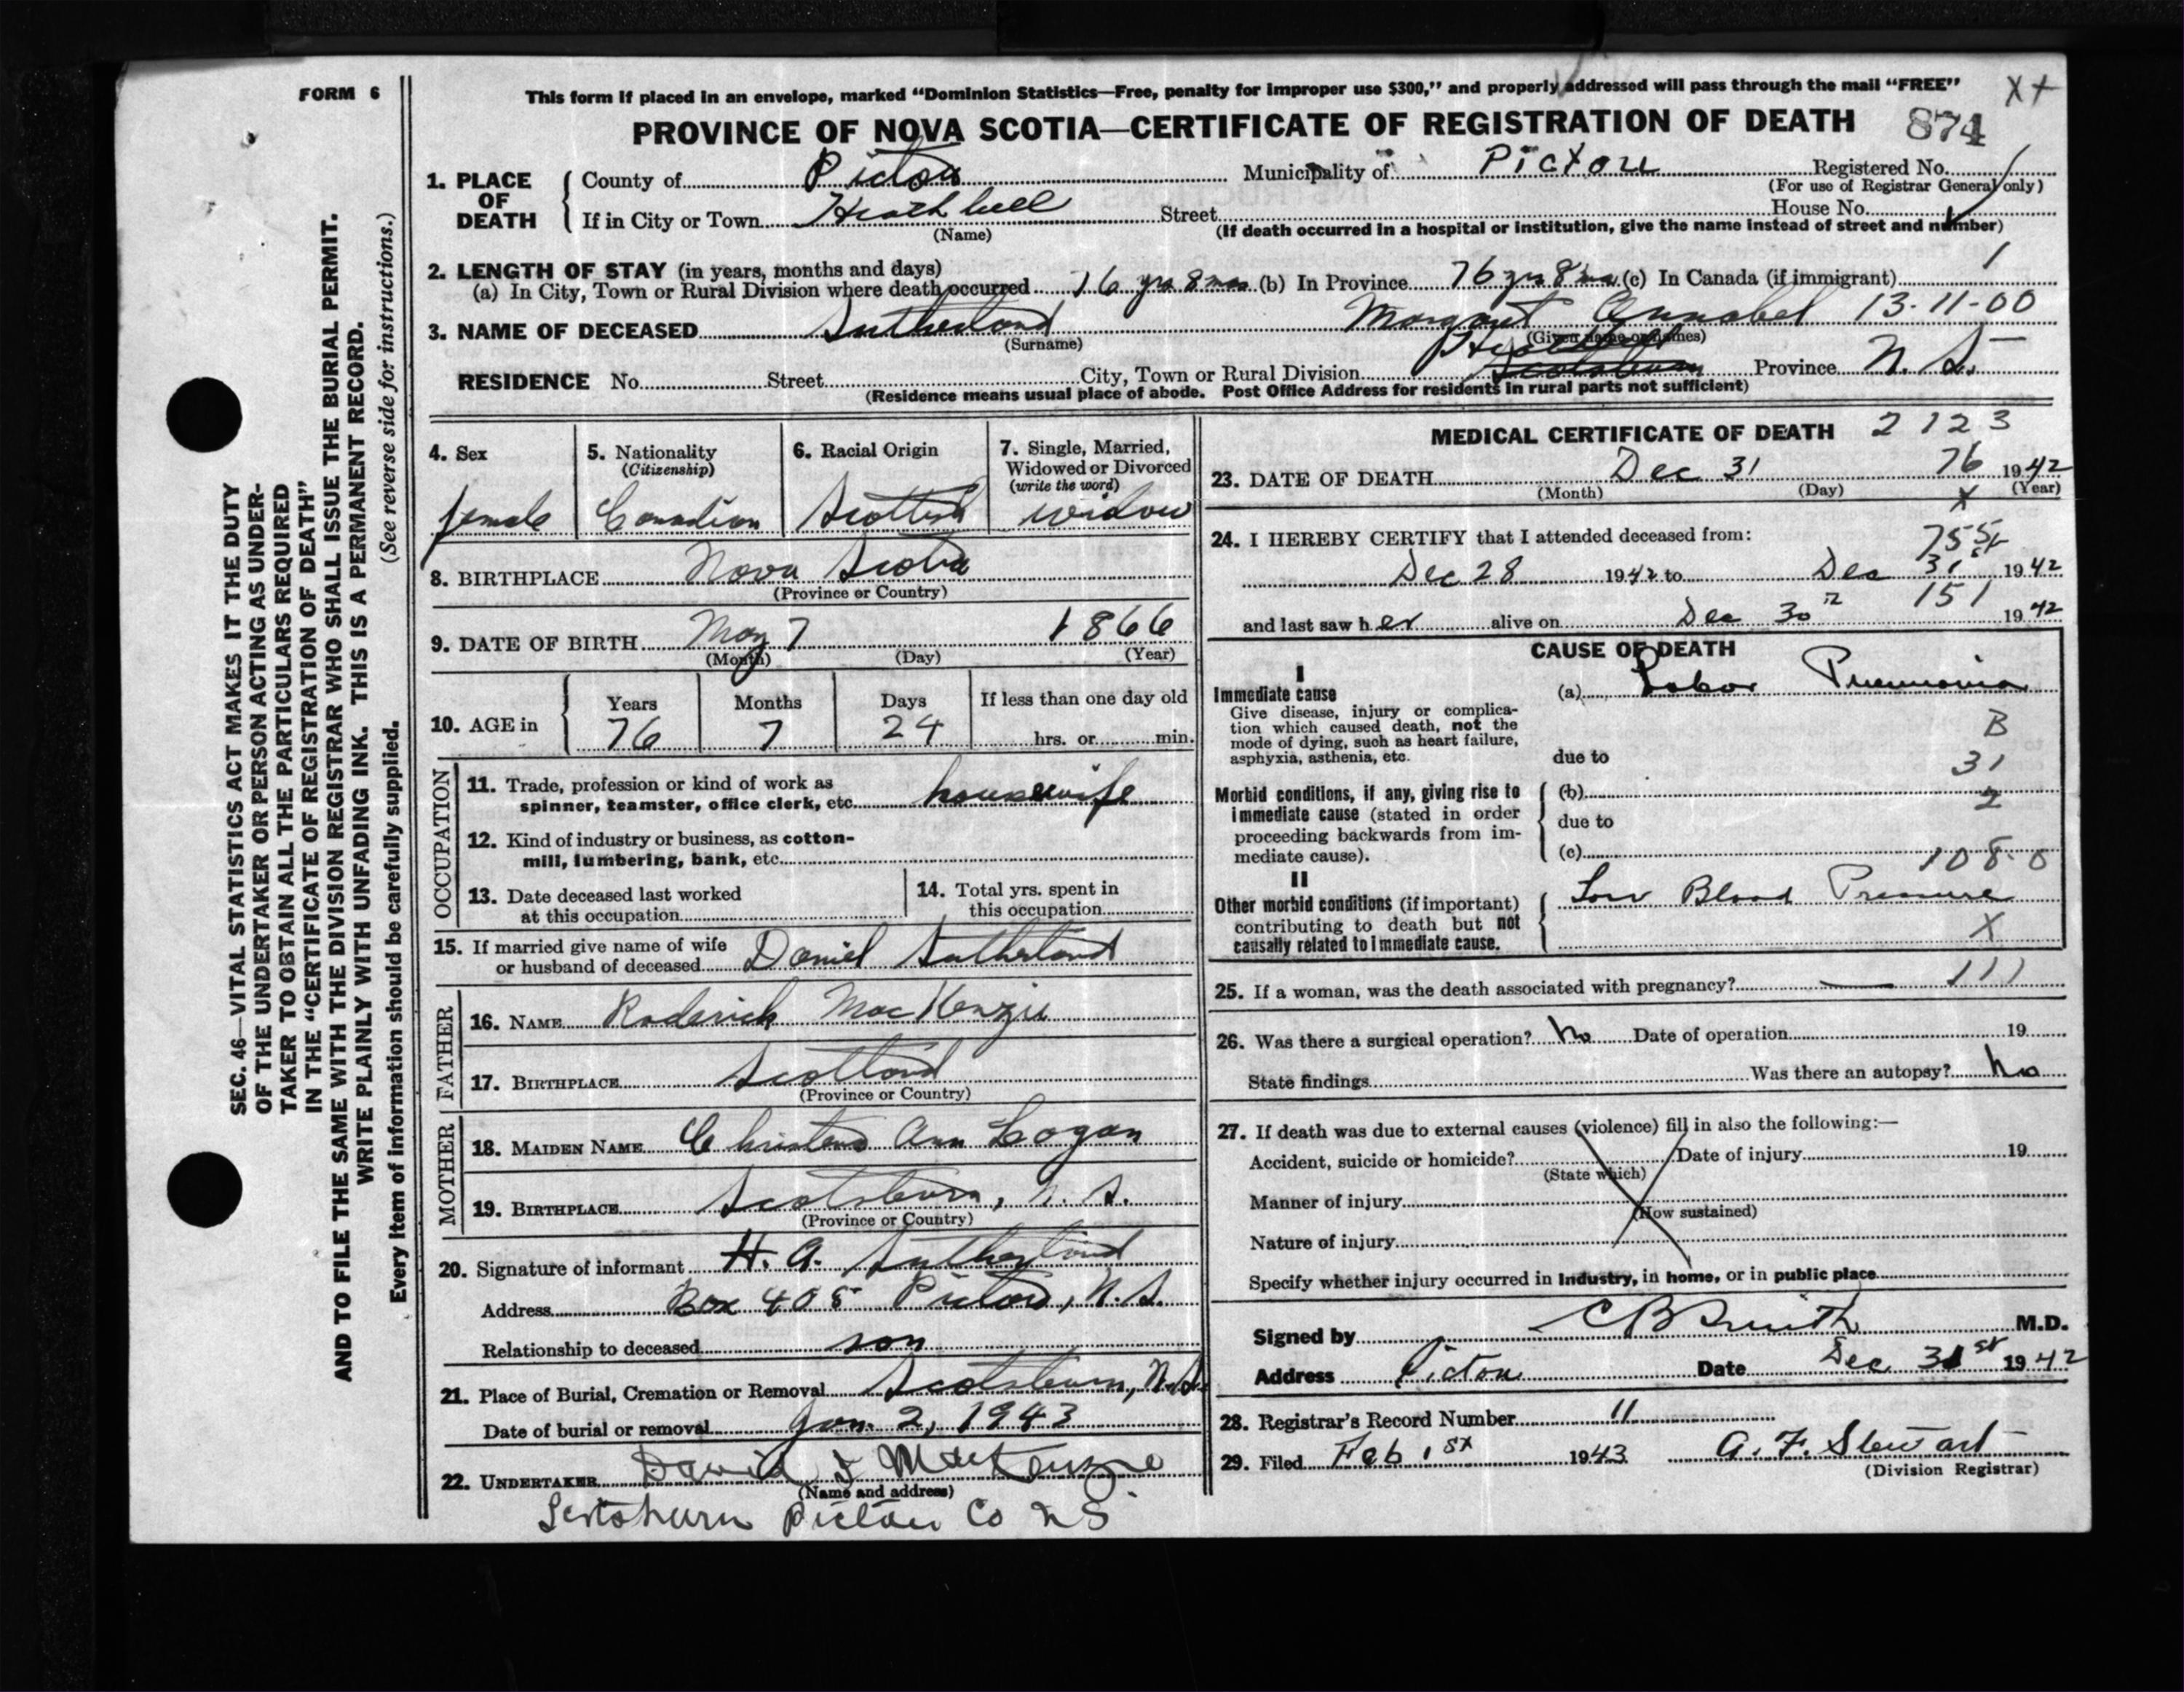 FORM 6
This form if placed in an envelope, marked “Dominion Statistics—Free, penalty for improper use $300,” and properly addressed will pass through the mail “FREE”
X+
PROVINCE OF NOVA SCOTIA—CERTIFICATE OF REGISTRATION OF DEATH 874
1. PLACE OF DEATH { County of Pictou Municipality of Pictou Registered No.
(For use of Registrar General only)
If in City or Town Heathbell Street House No.
(Name) (If death occurred in a hospital or institution, give the name instead of street and number)
2. LENGTH OF STAY (in years, months and days) 1
(a) In City, Town or Rural Division where death occurred 76 yrs 8 mos (b) In Province 76 yrs 8 mos (c) In Canada (if immigrant)
3. NAME OF DECEASED Sutherland Margaret Annabel 13-11-00
(Surname) (Given name or names)
RESIDENCE No. Street City, Town or Rural Division Heathbell Scotsburn Province N. S.
(Residence means usual place of abode. Post Office Address for residents in rural parts not sufficient)
4. Sex
female
5. Nationality
(Citizenship)
Canadian
6. Racial Origin
Scottish
7. Single, Married,
Widowed or Divorced
(write the word)
widow
8. BIRTHPLACE Nova Scotia
(Province or Country)
9. DATE OF BIRTH May 7 1866
(Month) (Day) (Year)
10. AGE in { Years Months Days If less than one day old
76 7 24 hrs. or min.
OCCUPATION
11. Trade, profession or kind of work as
spinner, teamster, office clerk, etc. housewife
12. Kind of industry or business, as cotton-
mill, lumbering, bank, etc.
13. Date deceased last worked
at this occupation
14. Total yrs. spent in
this occupation
15. If married give name of wife
or husband of deceased Daniel Sutherland
FATHER
16. NAME Roderick MacKenzie
17. BIRTHPLACE Scotland
(Province or Country)
MOTHER
18. MAIDEN NAME Christena Ann Logan
19. BIRTHPLACE Scotsburn, N. S.
(Province or Country)
20. Signature of informant H. A. Sutherland
Address Box 408 Pictou, N. S.
Relationship to deceased son
21. Place of Burial, Cremation or Removal Scotsburn, N.S.
Date of burial or removal Jan. 2, 1943
22. UNDERTAKER David I MacKenzie
(Name and address)
Scotsburn Pictou Co NS
MEDICAL CERTIFICATE OF DEATH 2123
23. DATE OF DEATH Dec 31 76 1942
(Month) (Day) X (Year)
24. I HEREBY CERTIFY that I attended deceased from: 755
Dec 28 1942 to Dec 31 1942
151
and last saw her alive on Dec 30 1942
CAUSE OF DEATH
I
Immediate cause
Give disease, injury or complica-
tion which caused death, not the
mode of dying, such as heart failure,
asphyxia, asthenia, etc.
(a) Lobar Pneumonia
B
due to
31
Morbid conditions, if any, giving rise to
immediate cause (stated in order
proceeding backwards from im-
mediate cause).
(b) 2
due to
(c) 108-0
II
Other morbid conditions (if important)
contributing to death but not
causally related to immediate cause.
Low Blood Pressure
X
25. If a woman, was the death associated with pregnancy? — 111
26. Was there a surgical operation? No Date of operation 19
State findings Was there an autopsy? No
27. If death was due to external causes (violence) fill in also the following:—
Accident, suicide or homicide? Date of injury 19
(State which)
Manner of injury
(How sustained)
Nature of injury
Specify whether injury occurred in industry, in home, or in public place
Signed by C B Smith M.D.
Address Pictou Date Dec 31st 1942
28. Registrar's Record Number 11
29. Filed Feb 1st 1943 A. F. Stewart
(Division Registrar)
SEC. 46—VITAL STATISTICS ACT MAKES IT THE DUTY
OF THE UNDERTAKER OR PERSON ACTING AS UNDER-
TAKER TO OBTAIN ALL THE PARTICULARS REQUIRED
IN THE “CERTIFICATE OF REGISTRATION OF DEATH”
AND TO FILE THE SAME WITH THE DIVISION REGISTRAR WHO SHALL ISSUE THE BURIAL PERMIT.
WRITE PLAINLY WITH UNFADING INK. THIS IS A PERMANENT RECORD.
Every item of information should be carefully supplied. (See reverse side for instructions.)